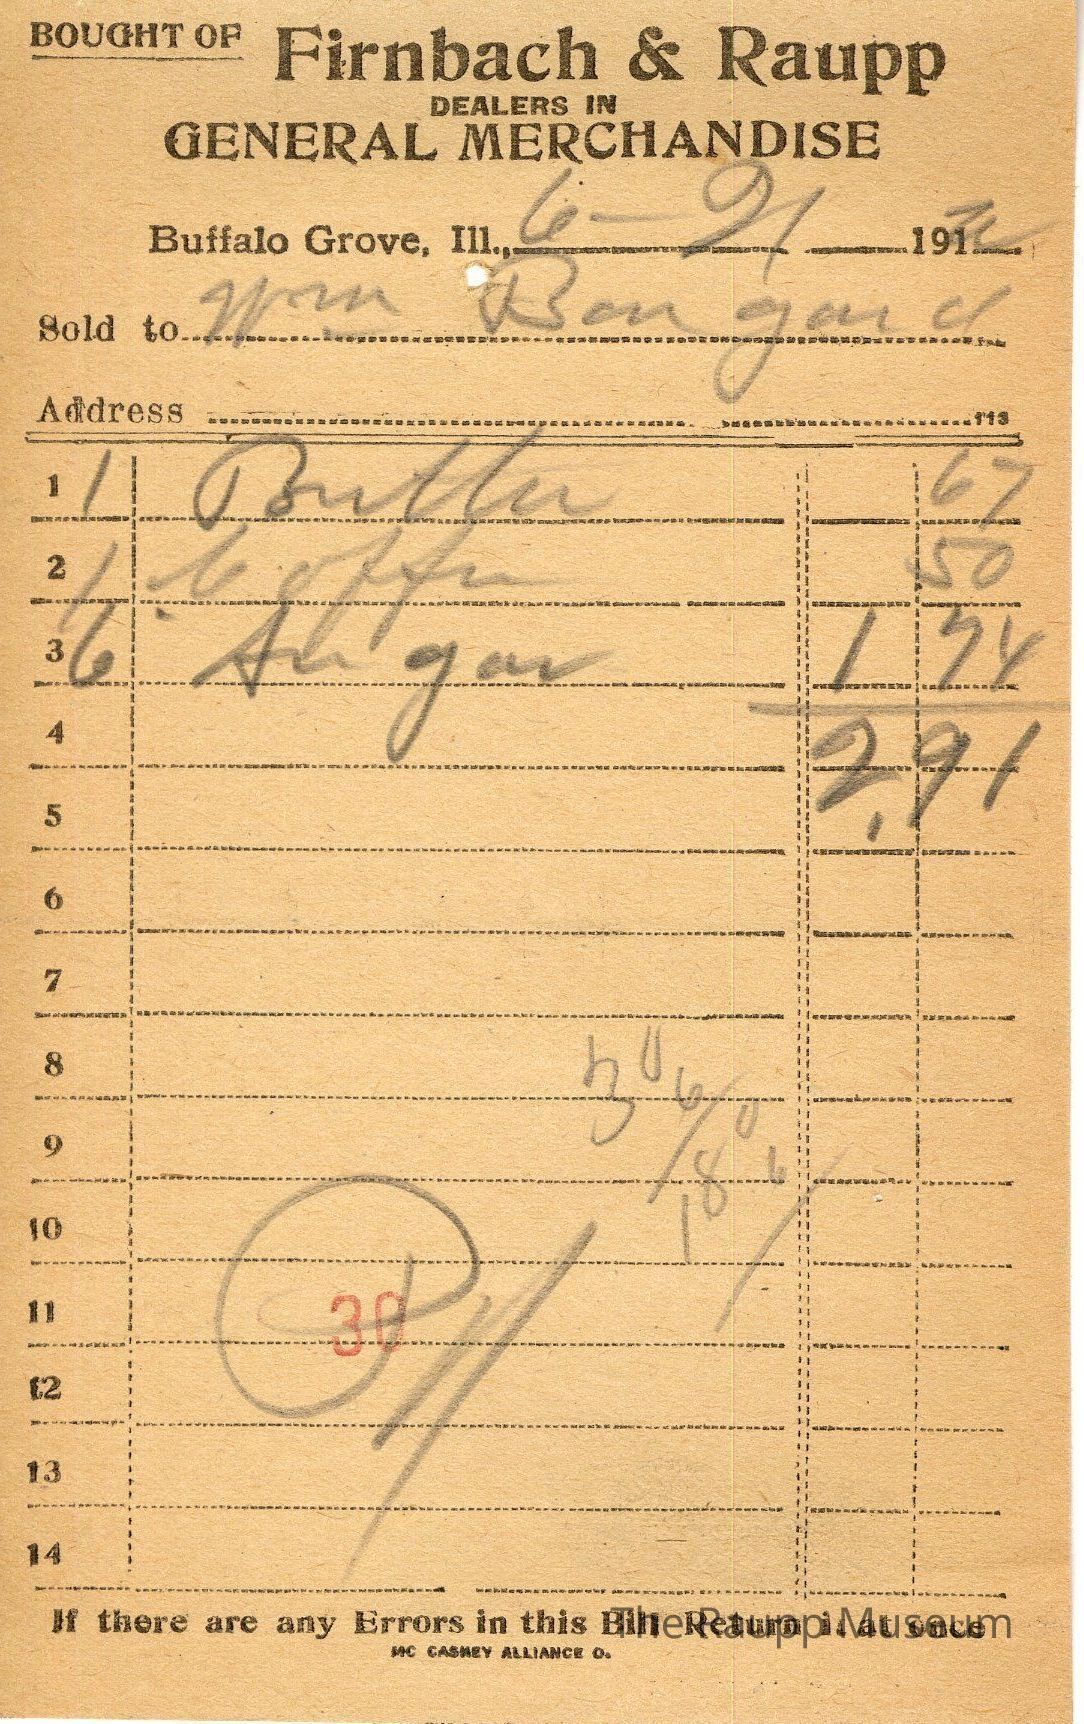 BOUGHT OF Firnbach & Raupp
DEALERS IN
GENERAL MERCHANDISE
Buffalo Grove, Ill., 6-21 191
Sold to Wm Bongard
Address 113
1 1 Butter 67
2 1 Coffee 50
3 6 Sugar 1 74
4 2,91
5
6
7
8
30 6/0
9
18 6/
10
11
30
12
13
14
If there are any Errors in this Bill Return it at once
The Raupp Museum
MC CASKEY ALLIANCE O.